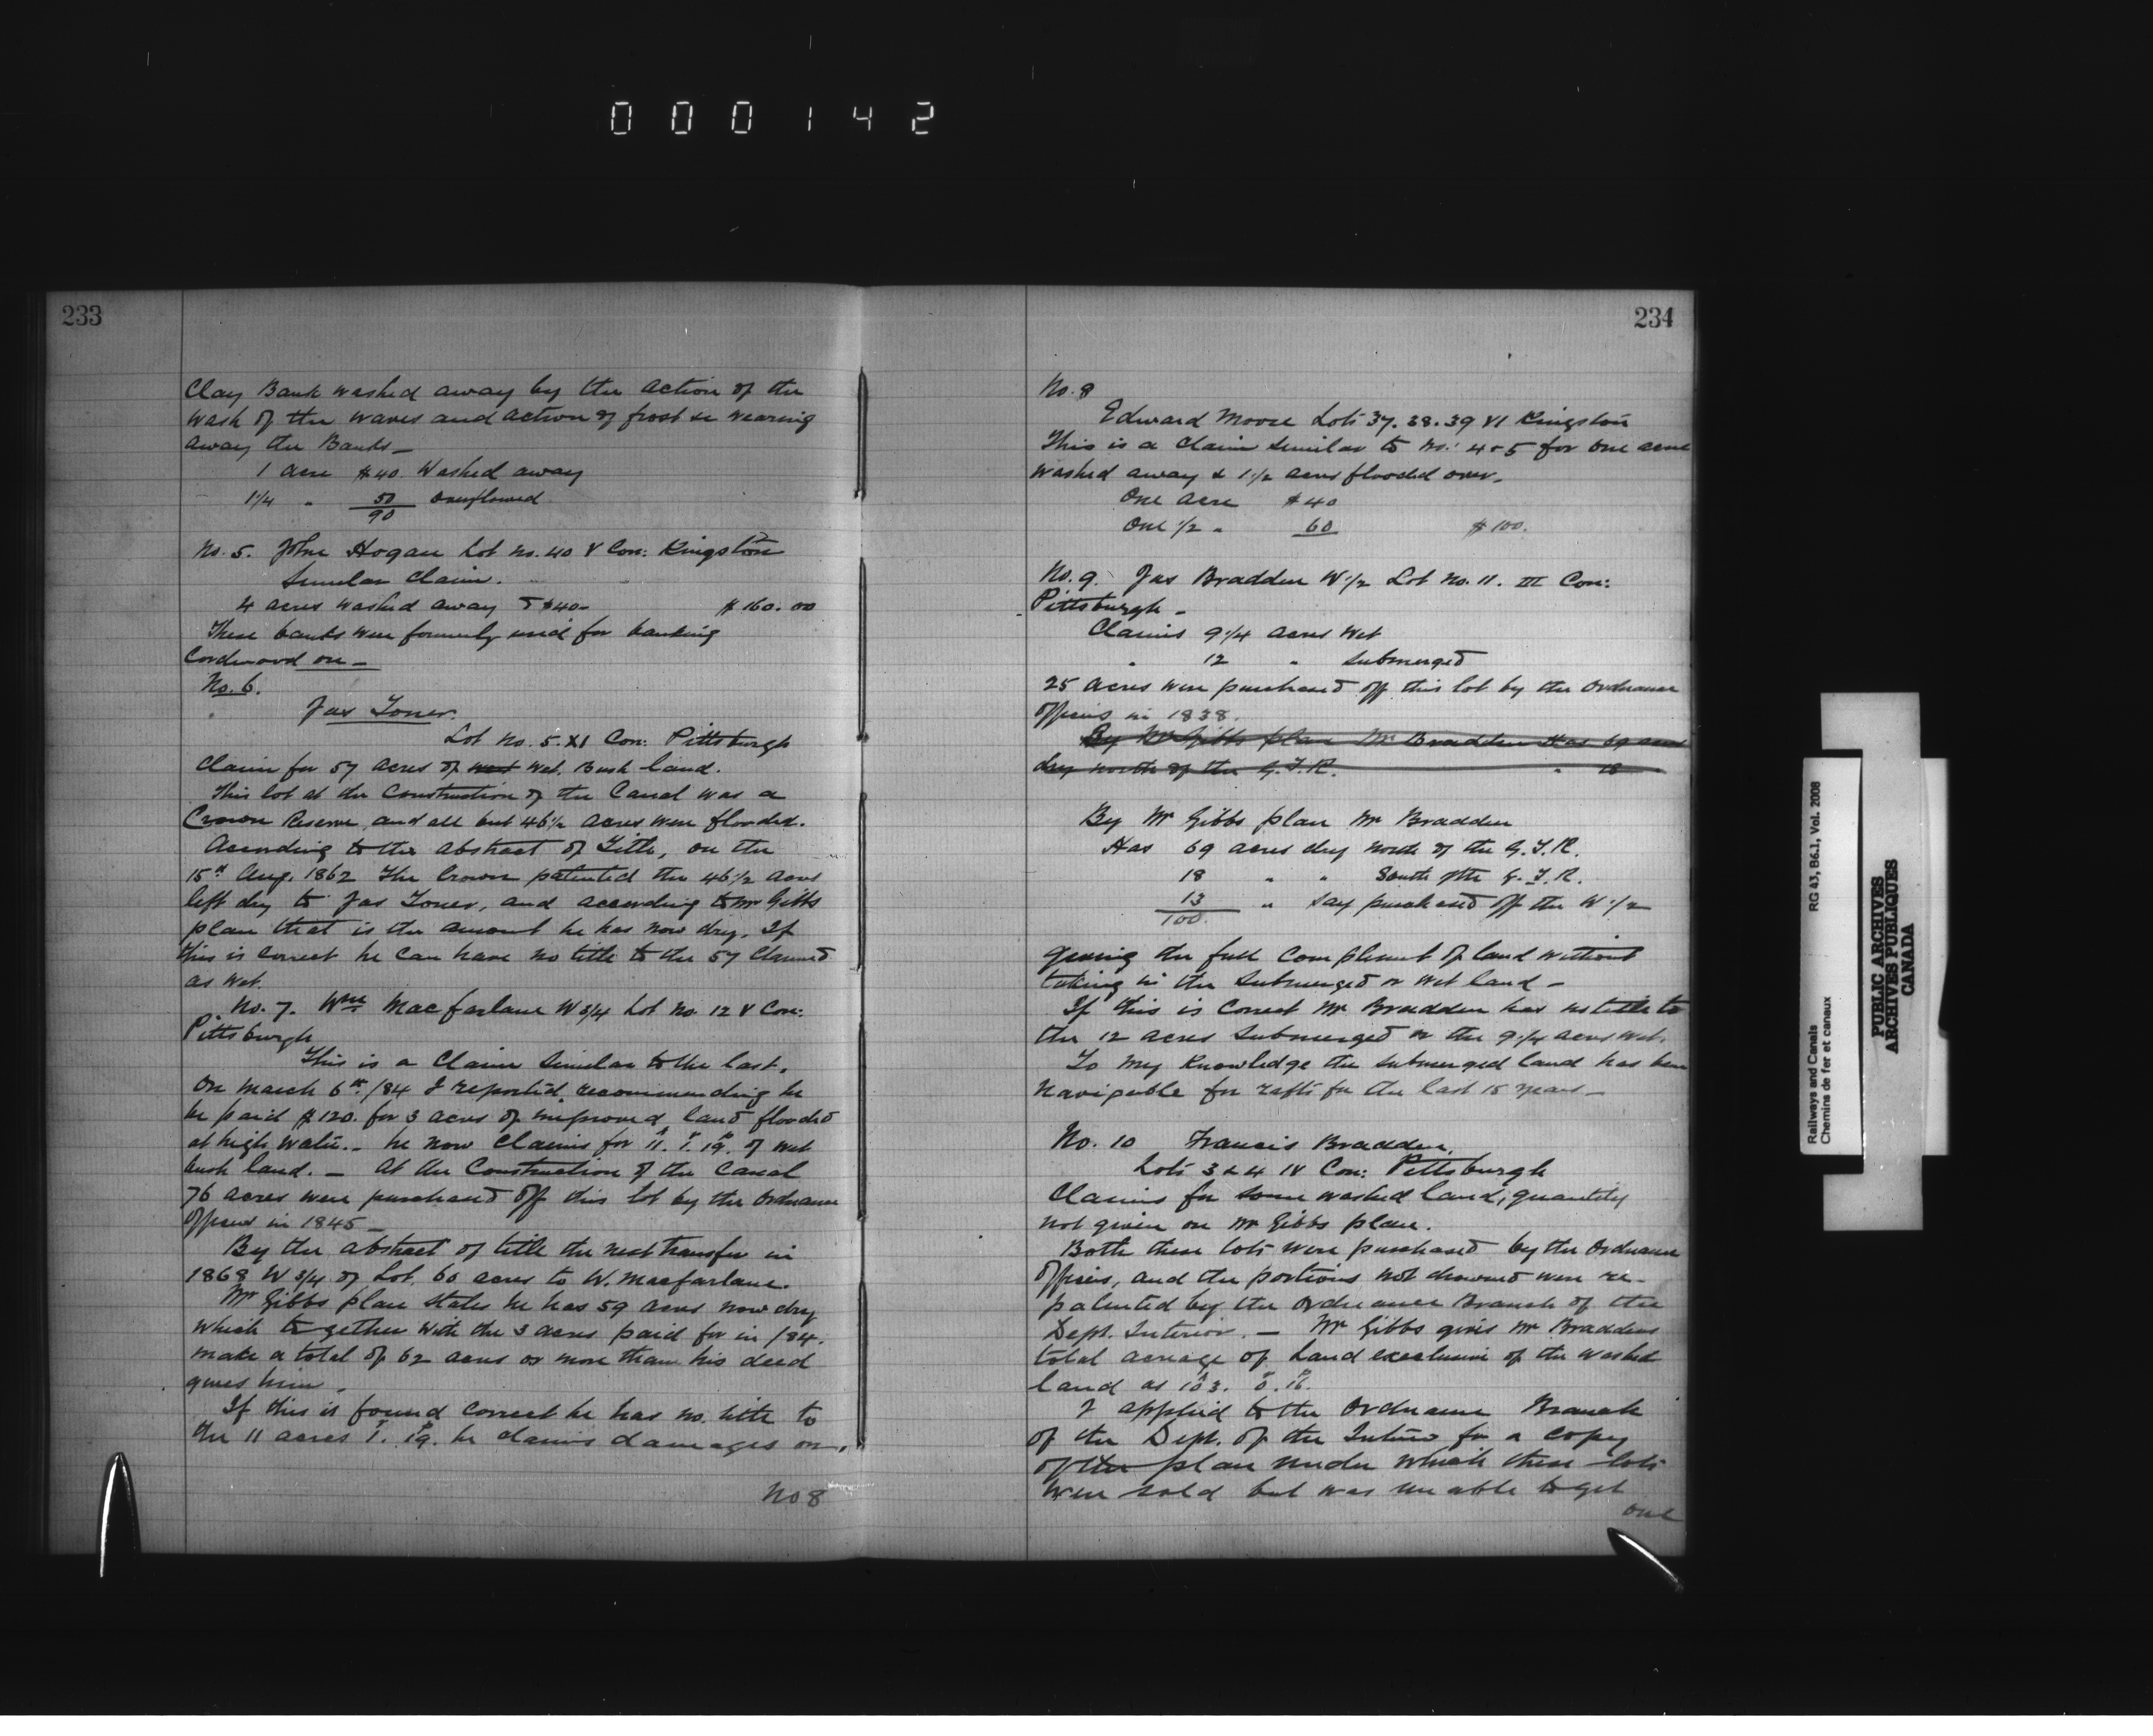 000142
233
Clay Bank washed away by the action of the
wash of the waves and action of frost &c wearing
away the Banks —
1 acre $40. Washed away
1 1/4 " 50 overflowed
90
No. 5. John Hogan Lot No. 40 V Con: Kingston
Similar Claim.
4 acres washed away @ $40 — $160.00
These banks were formerly used for banking
Cordwood on —
No. 6.
Jas Toner.
Lot No. 5. XI Con: Pittsburgh
Claim for 57 acres of wet. Bush land.
This lot at the Construction of the Canal was a
Crown Reserve and all but 46 1/2 acres were flooded.
According to the abstract of Title, on the
15th Aug. 1862 The Crown patented the 46 1/2 acres
left dry to Jas Toner, and according to Mr Gibbs
plan that is the amount he has now dry. If
this is correct he can have no title to the 57 Claimed
as wet.
No. 7. Wm Macfarlane W 3/4 Lot No. 12 V Con:
Pittsburgh
This is a Claim similar to the last.
On March 6th /84 I reported recommending he
be paid $120. for 3 acres of improved land flooded
at high water. — he now Claims for 11.A 1.r 19.p of wet
bush land. — At the Construction of the Canal
76 acres were purchased off this lot by the Ordnance
Officers in 1845 —
By the abstract of title the next transfer in
1868 W 3/4 of Lot, 60 acres to W. Macfarlane.
Mr Gibbs plan states he has 59 acres now dry
which together with the 3 acres paid for in /84.
make a total of 62 acres or more than his deed
gives him.
If this is found correct he has no. title to
the 11 acres 1.r 19.p he claims damages on.
No 8
234
No. 8
Edward Moore Lots 37. 38. 39 VI Kingston
This is a Claim similar to No.: 4 & 5 for one acre
washed away & 1 1/2 acres flooded over.
One acre $40
One 1/2 " 60 $100.
No. 9. Jas Bradden W 1/2 Lot No. 11. III Con:
Pittsburgh —
Claims 9 1/4 acres wet
" 12 " submerged
25 acres were purchased off this lot by the Ordnance
Officers in 1838.
By Mr Gibbs plan Mr Bradden Has 69 acres
dry north of the G.T.R. " 18
By Mr Gibbs plan Mr Bradden
Has 69 acres dry north of the G.T.R.
18 " " South of the G.T.R.
13 " say purchased off the W 1/2
100
giving the full compliment of land without
taking in the submerged or wet land —
If this is correct Mr Bradden has no title to
the 12 acres submerged or the 9 1/4 acres wet.
To my knowledge the submerged land has been
navigable for rafts for the last 15 years —
No. 10 Francis Bradden,
Lots 3 & 4 IV Con: Pittsburgh
Claims for some washed land, quantity
not given on Mr Gibbs plan.
Both these lots were purchased by the Ordnance
Officers, and the portions not drowned were re-
patented by the Ordnance Branch of the
Dept. Interior. — Mr Gibbs gives Mr Braddens
total acreage of land exclusive of the washed
land as 103.A 0.r 16.p
I applied to the Ordnance Branch
of the Dept. of the Interior for a copy
of the plan under which these lots
were sold but was unable to get
one
Railways and Canals
Chemins de fer et canaux
RG 43, B6.1, Vol. 2008
PUBLIC ARCHIVES
ARCHIVES PUBLIQUES
CANADA